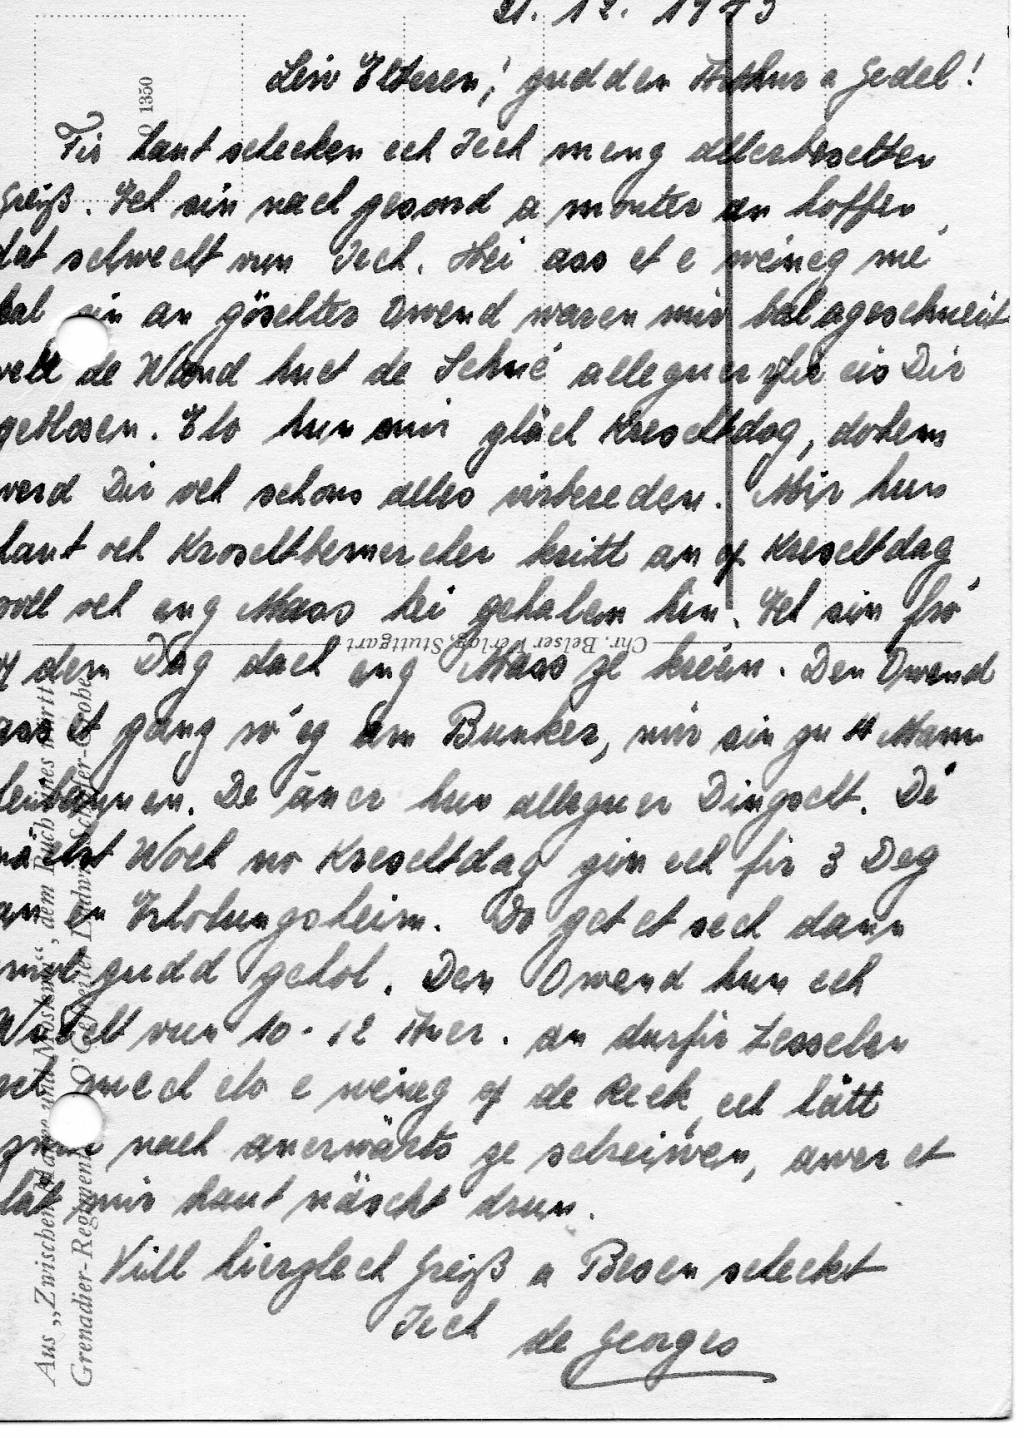 21. 12. 1943
Leiv Elteren, gudden Arthur a Gedel!
Fir haut schecken ech Iech meng allerbeschten
Greiß. Ech sin nach gesond a monter an hoffen
dat selwecht vun Iech. Hei ass et e weineg mé
kal gin an göschter Owend waren mir bal ageschneit
well de Wand huet de Schné alleguer fir eis Dir
geblosen. Elo hun mir gläch Kreschtdag, dohem
werd Dir och schons alles virbereden. Mir hun
haut och Kroschtbemercher kritt an of Kreschtdag
soll och eng Mass hei gehalen hin. Ech sin fró
of dem Dag dach eng Mass ze kréien. Den Owend
ass et gang róeg am Bunker, mir sin zu 4 Mann
De áner hun alleguer Dingscht. Dé
nächst Woch no Kreschtdag gin ech fir 3 Deg
an en Erholungsheim. Do get et sech dann
mol gudd gehol. Den Owend hun ech
Wabcht vun 10-12 Auer. an durfir
ech mech elo e weineg of de Reck, ech hätt
zwar nach anerwärts ze schreiwen, awer et
lät mir haut näscht drun.
Vill hierzlech Greiß a Besen scheckt
Iech de Georges
1350
Chr. Belser Verlag, Stuttgart
Aus „Zwischen und Moskau“, dem Buch eines württ.
Grenadier-Regiments O'Gefreiter